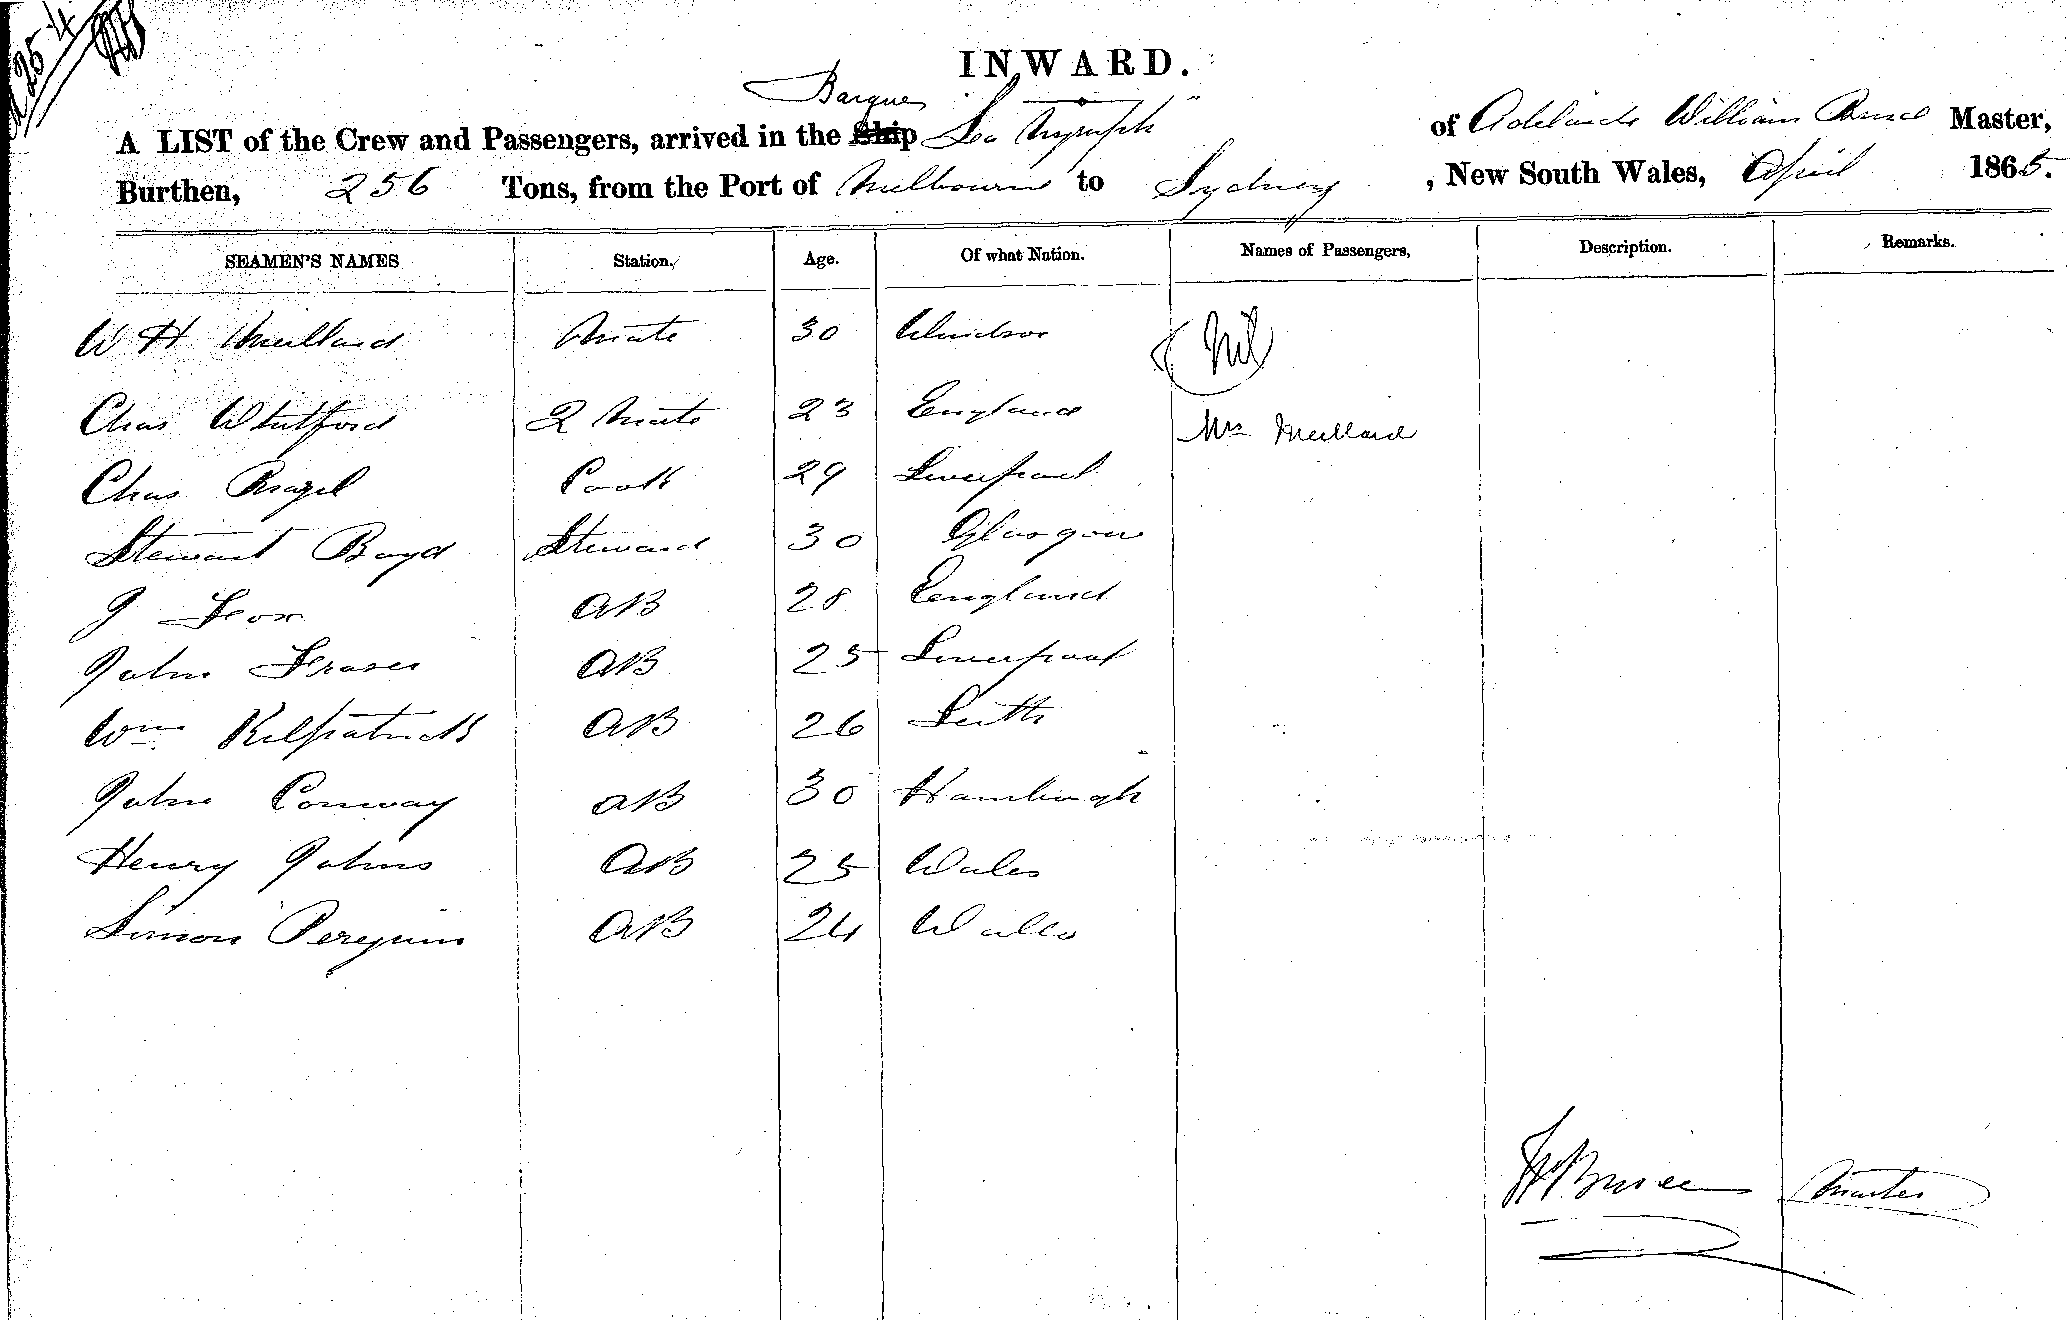 25 4
INWARD.
Barque
A LIST of the Crew and Passengers, arrived in the Ship Sea Nymph of Adelaide William Master,
Burthen, 256 Tons, from the Port of Melbourne to Sydney, New South Wales, April 1865.
SEAMEN'S NAMES Station. Age. Of what Nation. Names of Passengers, Description. Remarks.
W H Meillard Mate 30 Windsor Nil
Chas Whitford 2 Mate 23 England Mrs Meillard
Chas Cook 29 Liverpool
Stewart Boyd Steward 30 Glasgow
J AB 28 England
John Fraser AB 25 Liverpool
Wm Kilpatrick AB 26 Leith
John Conway AB 30 Hamburgh
Henry Johns AB 25 Wales
Simon AB 24 Wales
Master